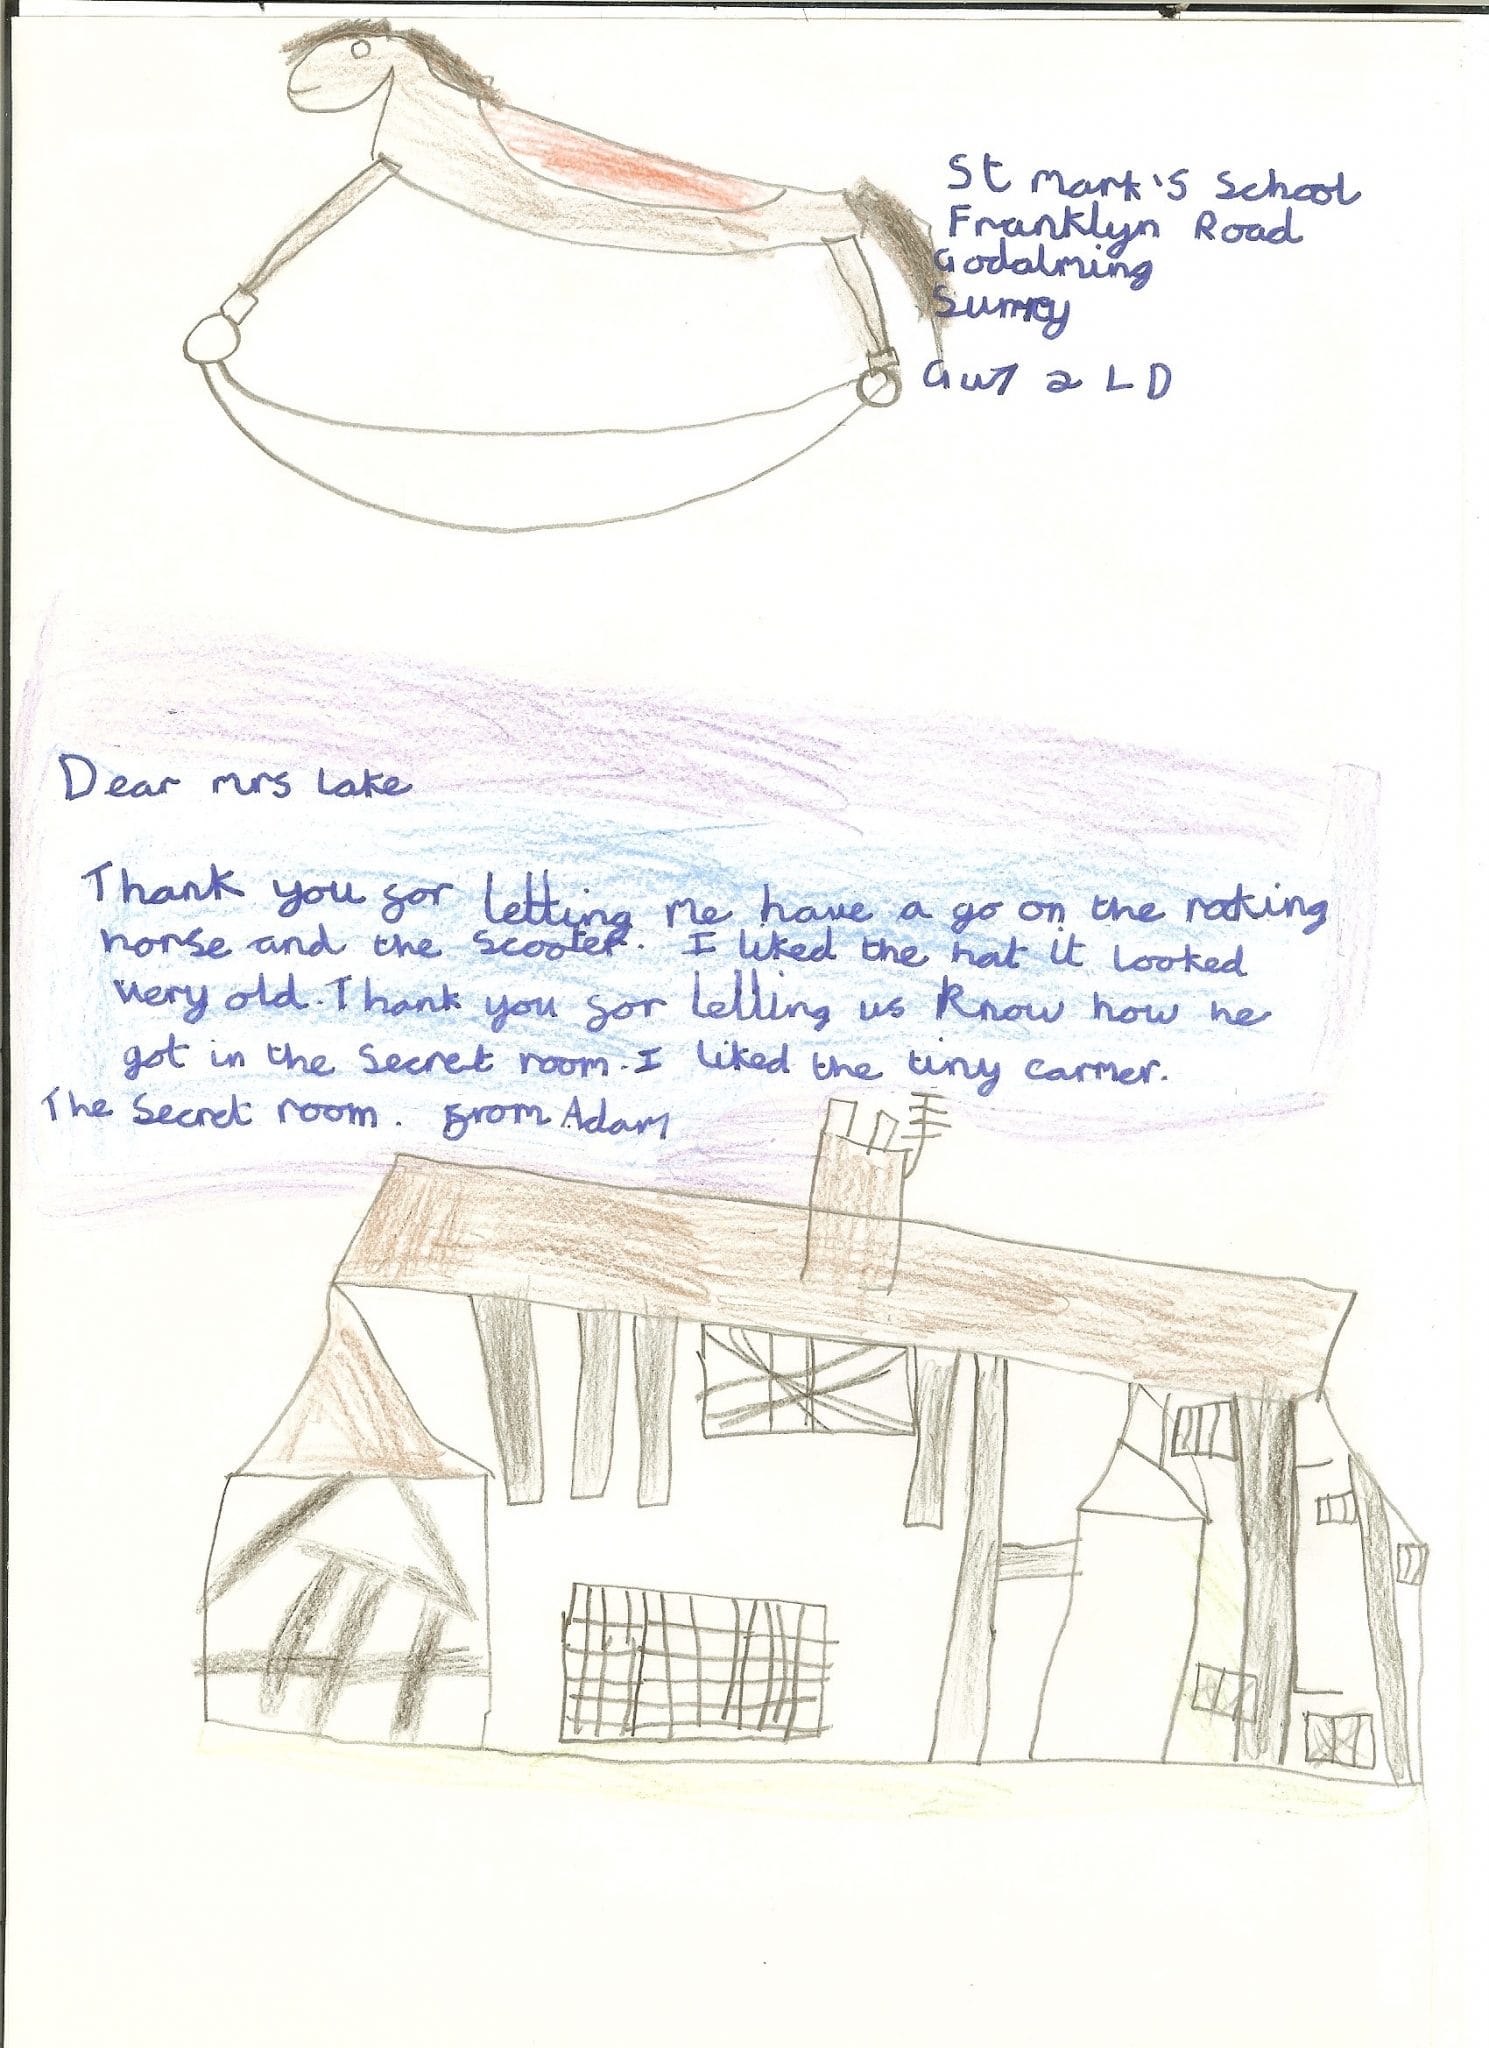 St Mark's School
Franklyn Road
Godalming
Surrey
Gu7 2 LD
Dear mrs Lake
Thank you for letting me have a go on the rocking
horse and the scooter. I liked the hat it looked
very old. Thank you for letting us know how he
got in the secret room. I liked the tiny carmer.
The secret room. From Adam